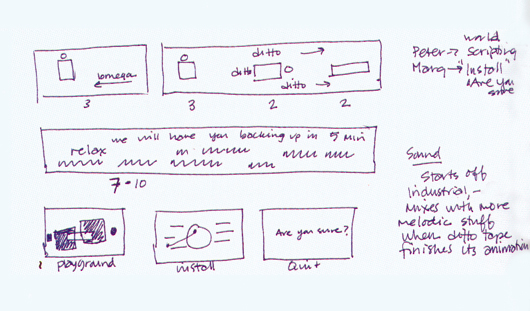 omega
3
ditto
ditto
ditto
3
2
2
we will have you backing up in 5 min
relax
7 - 10
playground
install
Are you sure?
Quit
world
Peter → Scripting
Marq → "Install"
"Are you
sure
Sound
Starts off
Industrial, -
Mixes with more
melodic stuff
when ditto tape
finishes its animation